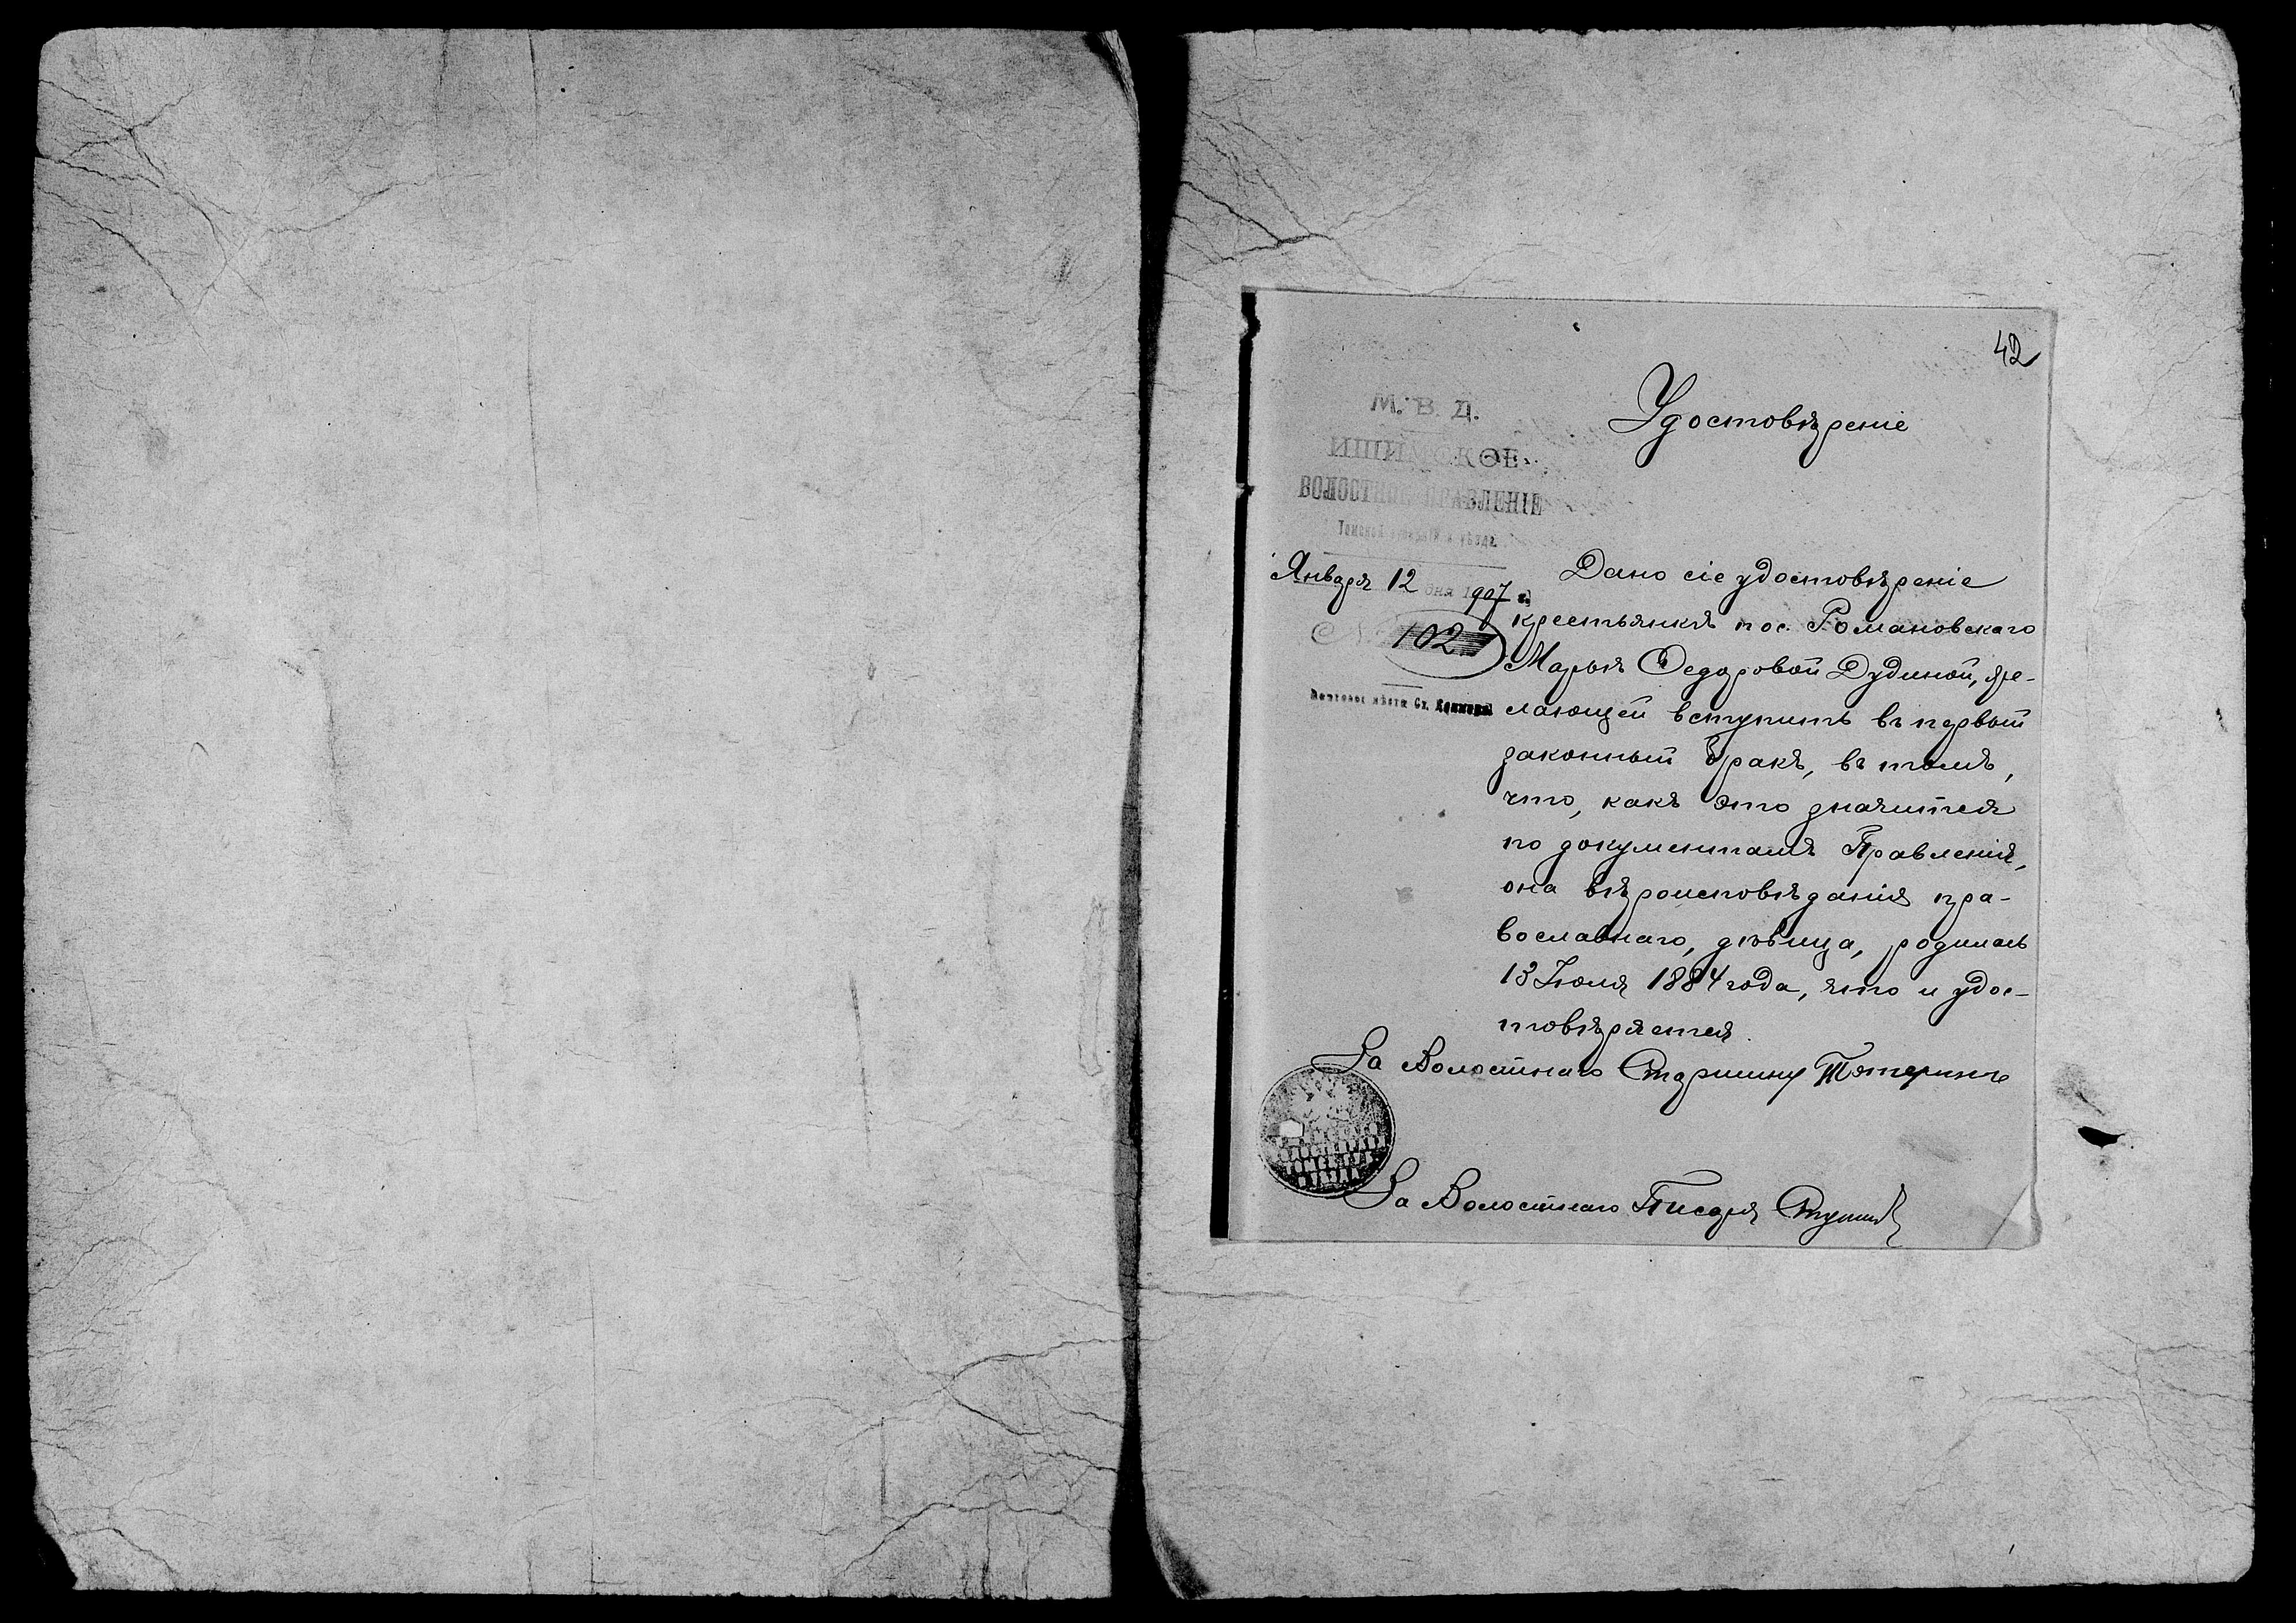 42
Удостовѣреніе
М. В. Д.
ИШИМСКОЕ
ВОЛОСТНОЕ ПРАВЛЕНІЕ
Томской губерніи и уѣзда.
Января 12 дня 1907 г.
№ 102
Дано сіе удостовѣреніе
крестьянкѣ пос. Романовскаго
Марьѣ Федоровой Дудиной, же-
лающей вступить въ первый
законный бракъ, въ томъ,
что, какъ это значится
по документамъ Правленія,
она вѣроисповѣданія пра-
вославнаго, дѣвица, родилась
13 Іюля 1884 года, что и удос-
товѣряется.
За Волостного Старшину Тетеринъ
За Волостного Писаря